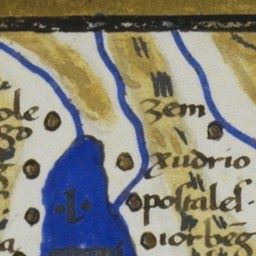 ole
go
zem
xudrio
postales.
iorbēg
.l.